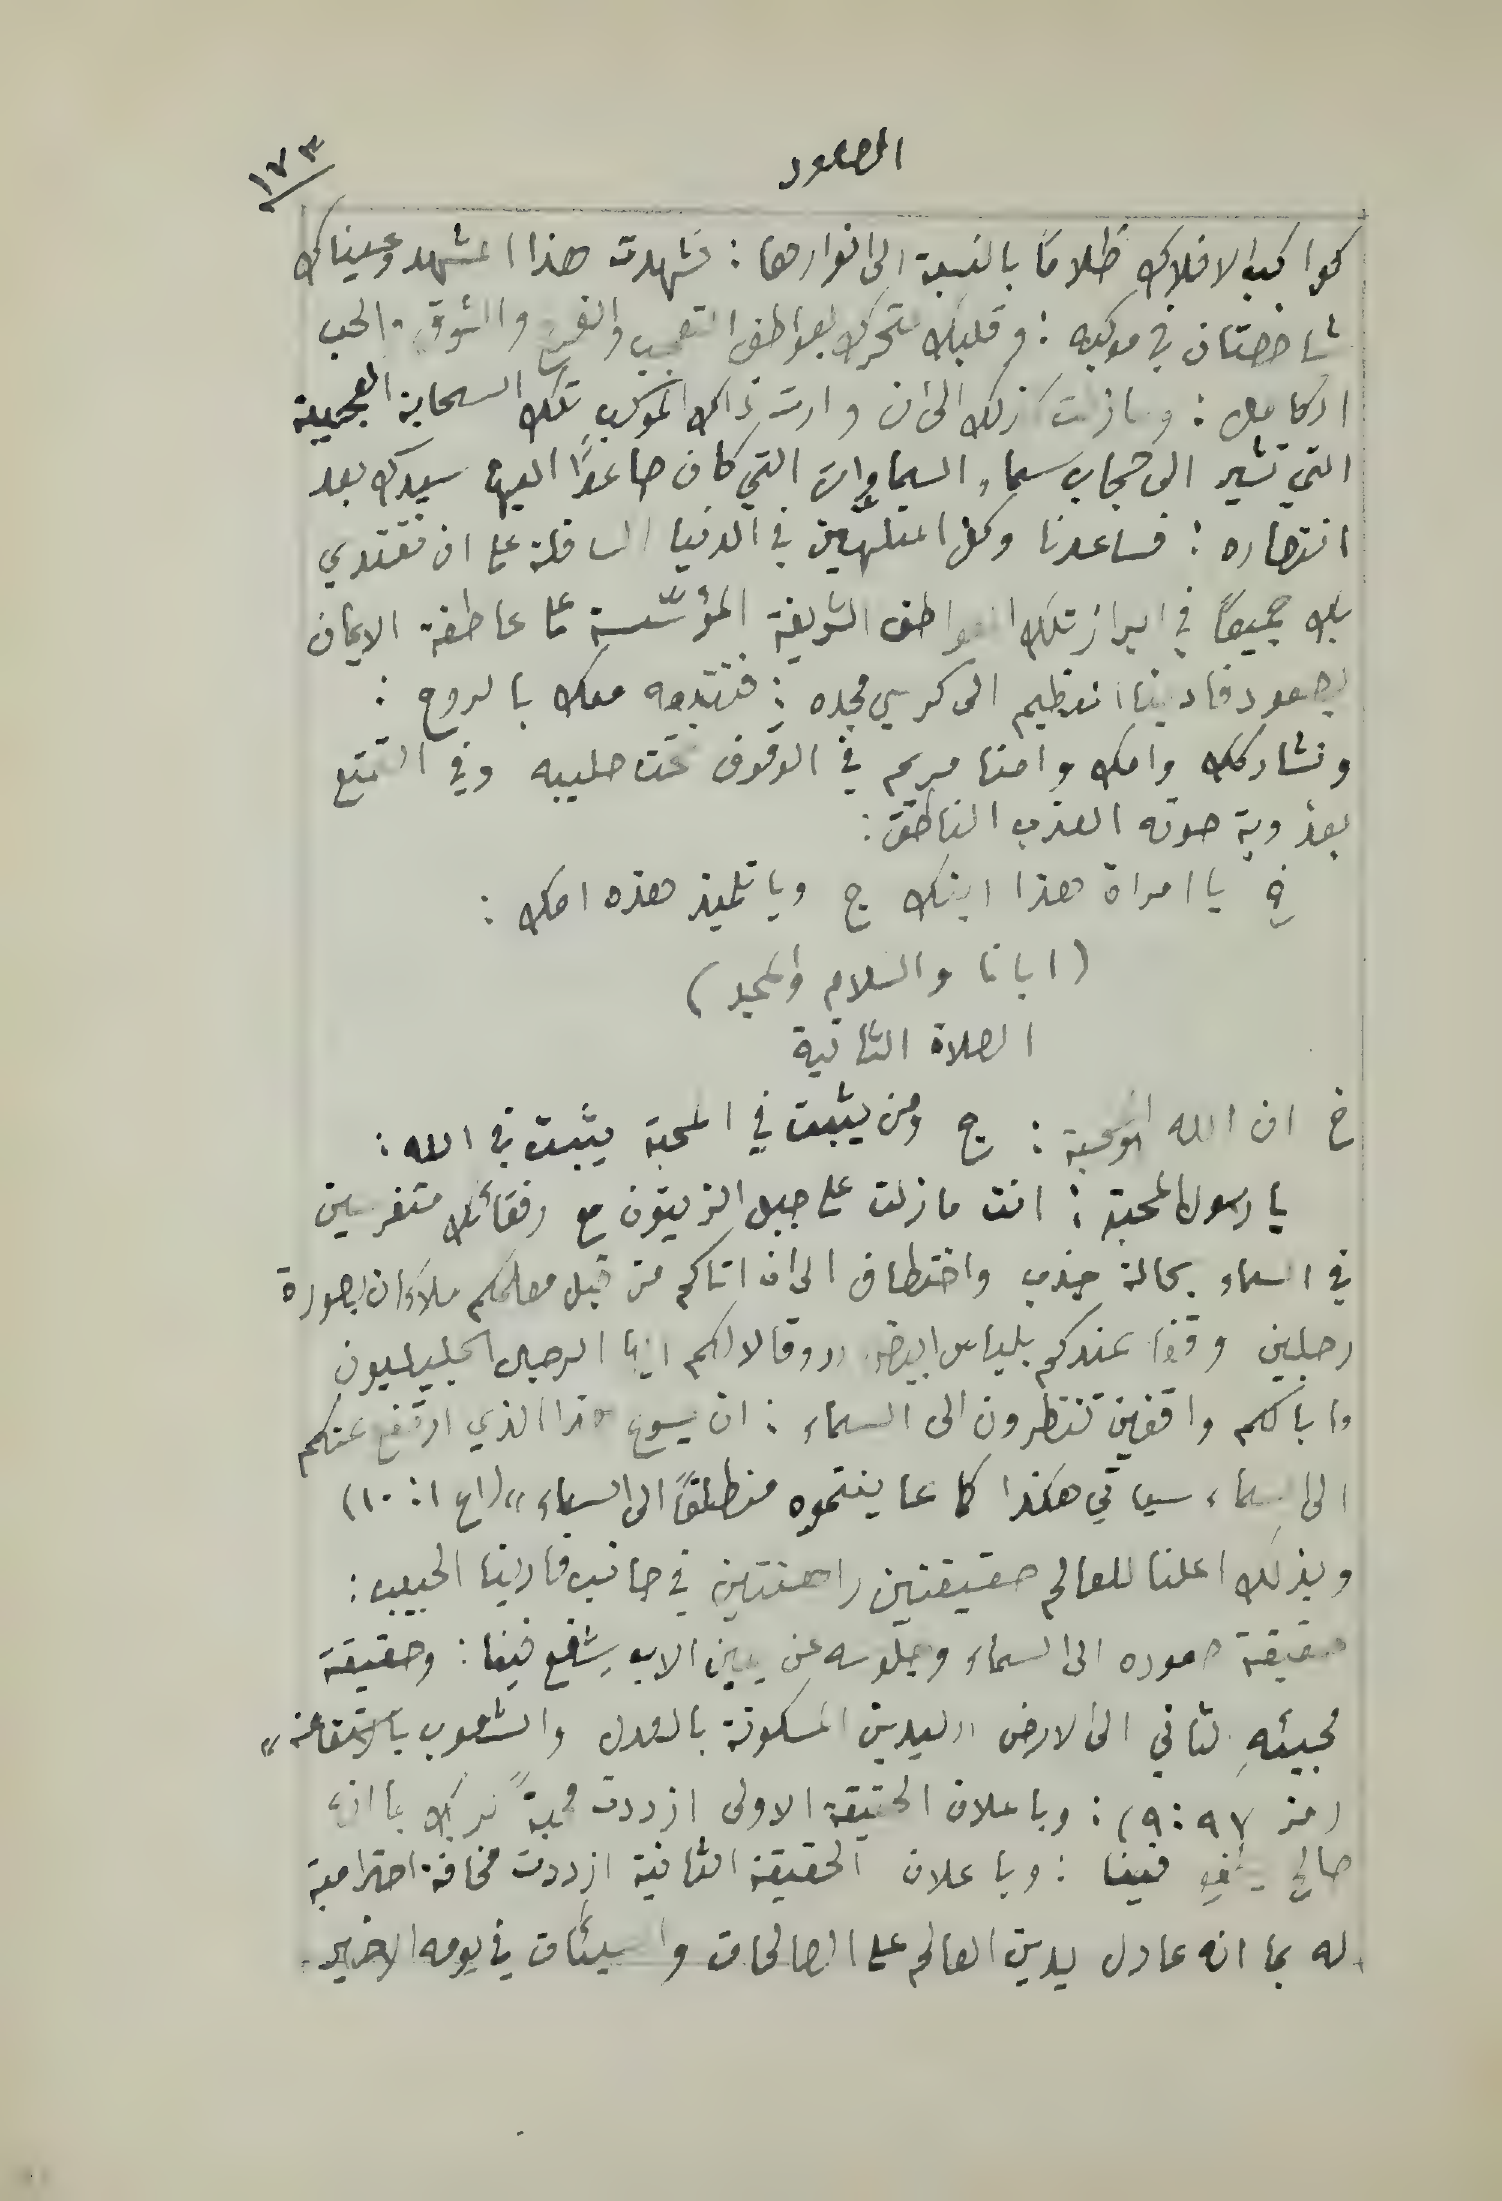 الصعود
١٧٣
كواكب الافلاك ظلامًا بالنسبة الى انوارها : فشهدت هذا المشهد وعيناك
شاخصتان في موكبه : وقلبك متحرك بعواطف التعجب والفرح والشوق والحب
الكامل : وما زلت كذلك الى ان وارت ذاك الموكب تلك السحابة العجيبة
التي تشير الى حجاب سماء السماوات التي كان صاعدًا اليها سيدك بعد
انتصاره : فساعدنا وكل المتلهّين في الدنيا السافلة على ان نقتدي
بك جميعًا في ابراز تلك العواطف الشريفة المؤسّسة على عاطفة الايمان
بصعود فادينا العظيم الى كرسي مجده : فنتبعه معك بالروح :
ونشاركك وامك وامنا مريم في الوقوف تحت صليبه وفي التمتع
بعذوبة صوته العذب الناطق :
خ يا امراة هذا ابنك ج ويا تلميذ هذه امك :
(ابانا والسلام والمجد)
الصلاة الثانية
خ ان الله المحبة : ج ومن يثبت في المحبة يثبت في الله :
يا رسول المحبة : انت ما زلت على جبل الزيتون مع رفقائك متفرسين
في السماء بحالة جذب واختطاف الى ان اتاكم من قبل معلمكم ملاكان بصورة
رجلين وقفا عندكم بلباس ابيض «وقالا لكم ايها الرجال الجليليون
ما بالكم واقفين تنظرون الى السماء : ان يسوع هذا الذي ارتفع عنكم
الى السماء سياتي هكذا كما عاينتموه منطلقًا الى السماء» (اع ١ : ١٠)
وبذلك اعلنا للعالم حقيقتين راهنتين في جانب فادينا الحبيب :
حقيقة صعوده الى السماء وجلوسه عن يمين الاب يشفع فينا : وحقيقة
مجيئهِ الثاني الى الارض «ليدين المسكونة بالعدل والشعوب بالاستقامة»
(مز ٩٧ : ٩) : وباعلان الحقيقة الاولى ازددت محبةً لربك بما انه
صالح يشفع فينا : وباعلان الحقيقة الثانية ازددت مخافة احترامية
له بما انه عادل يدين العالم على الصالحات والسيئات في يومه الاخير